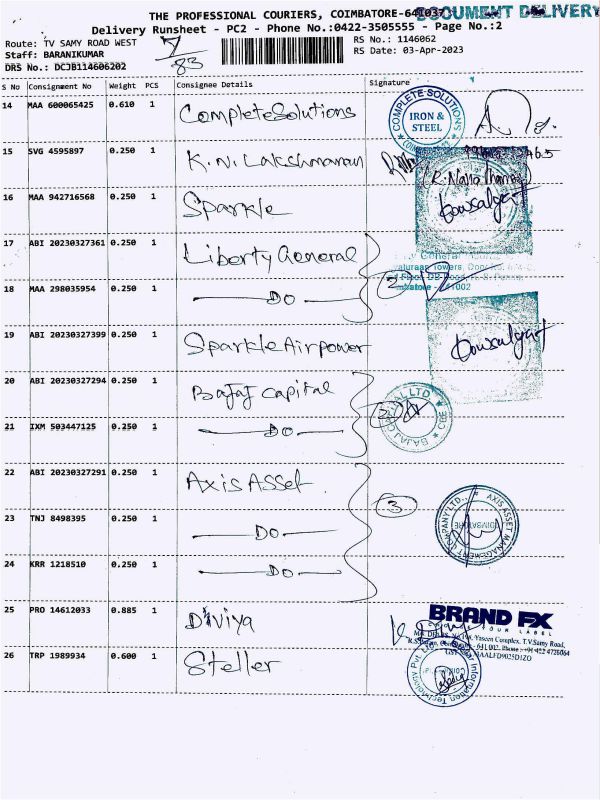 THE PROFESSIONAL COURIERS, COIMBATORE-641037
DOCUMENT DELIVERY
Delivery Runsheet - PC2 - Phone No.:0422-3505555 - Page No.:2
Route: TV SAMY ROAD WEST
RS No.: 1146062
Staff: BARANIKUMAR
RS Date: 03-Apr-2023
DRS No.: DCJB114606202
7/83
S No Consignment No Weight PCS Consignee Details Signature
14 MAA 600065425 0.610 1 Complete Solutions
COMPLETE SOLUTIONS
IRON &
STEEL
15 SVG 4595897 0.250 1 K.N. Lakshmanan
16 MAA 942716568 0.250 1 Sparkle
Gowsalya
17 ABI 20230327361 0.250 1 Liberty General
18 MAA 298035954 0.250 1 DO
2
19 ABI 20230327399 0.250 1 Sparkle Airpower
Gowsalya
20 ABI 20230327294 0.250 1 Bajaj Capital
21 IXM 503447125 0.250 1 DO
2
BAJAJ CAPITAL LTD
CBE
22 ABI 20230327291 0.250 1 Axis Asset
23 TNJ 8498395 0.250 1 DO
24 KRR 1218510 0.250 1 DO
3
AXIS ASSET MANAGEMENT COMPANY LTD.,
COIMBATORE
25 PRO 14612033 0.885 1 Diviya
BRAND FX
YOUR LABEL
Yaseen Complex, T.V.Samy Road,
641 002. Phone : +91 422 4726064
26 TRP 1989934 0.600 1 Steller
Information Technology Pvt. Ltd